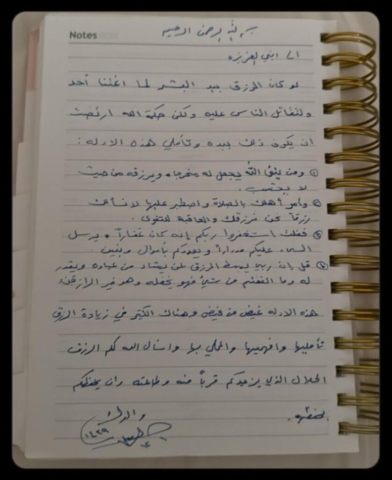 Notes
بسم الله الرحمن الرحيم
الى ابنتي العزيزه
لو كان الرزق بيد البشر لما اغتنا أحد
ولتقاتل الناس عليه ولكن حكمة الله ارتضت
ان يكون ذلك بيده وتأملي هذه الادله :
① ومن يتق الله يجعل له مخرجاً ويرزقه من حيث
لا يحتسب .
② وأمر أهلك بالصلاة واصطبر عليها لا نسألك
رزقاً نحن نرزقك والعاقبة للتقوى .
③ فقلت استغفروا ربكم إنه كان غفاراً * يرسل
السماء عليكم مدراراً * ويمددكم بأموال وبنين
④ قل إن ربي يبسط الرزق لمن يشاء من عباده ويقدر
له وما انفقتم من شيء فهو يخلفه وهو خير الرازقين
هذه الادله غيض من فيض وهناك الكثير في زيادة الرزق
تأمليها وافهميها واعملي بها واسأل الله لكم الرزق
الحلال الذي يزيدكم قرباً منه وطاعته وان يحفظكم
بحفظه .
والدك
١٤٣٩